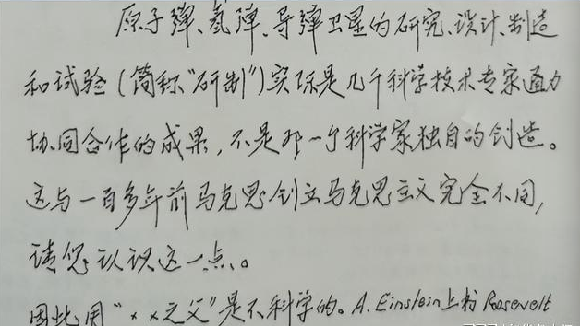 原子弹、氢弹、导弹卫星的研究、设计、制造
和试验(简称“研制”)实际是几千科学技术专家通力
协同合作的成果,不是那一个科学家独自的创造。
这与一百多年前马克思创立马克思主义完全不同,
请您认识这一点。
因此用“××之父”是不科学的。A. Einstein上书Roosevelt